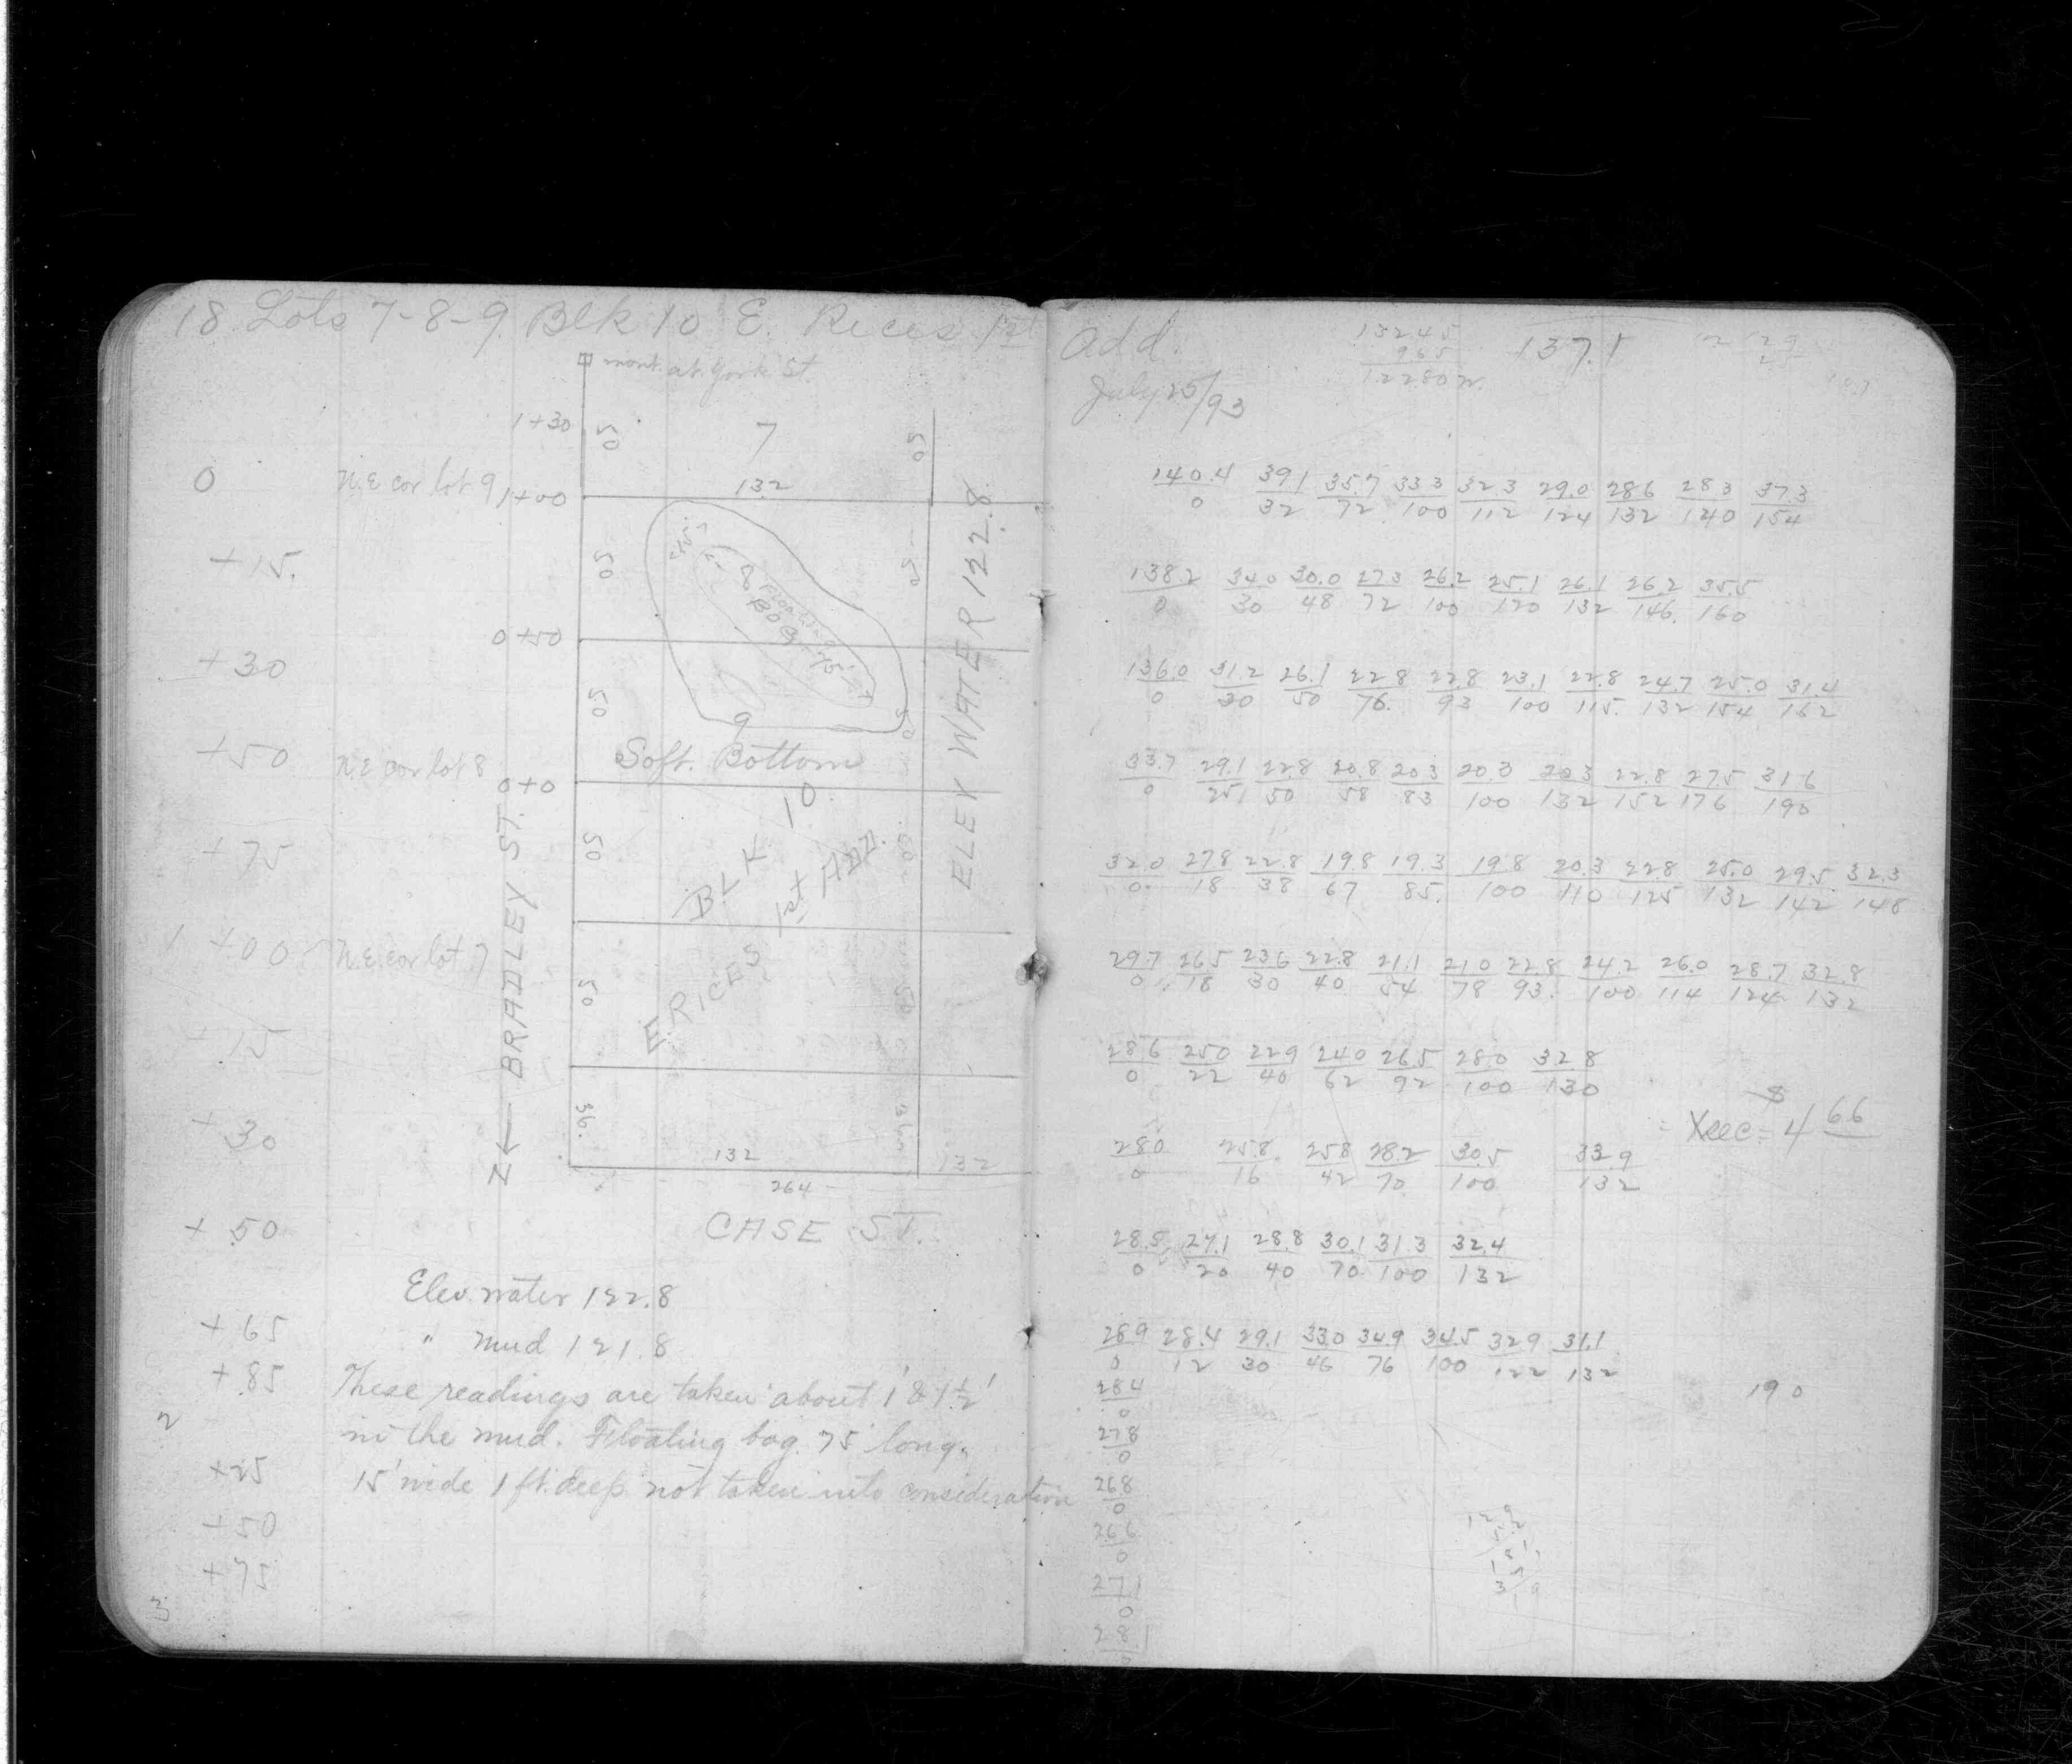 18 Lots 7-8-9 Blk 10 E. Rices 1st Add.
July 25/93
13245
965
12280 w.
137.1
mont. at York St.
1+30
50 7 50
0 N.E cor lot 9
1+00
132
+15.
50 8 50
Floating
Bog
0+50
+30
50 9 50
+50 N.E cor lot 8
Soft. Bottom
0+0
+75
50 BLK. 10 50
1 +00 N.E. cor lot 7
50 E. RICES 1st ADD. 50
+15
+30
36.
132 132
264
N ← BRADLEY ST.
ELEV WATER 122.8
+50
CASE ST.
Elev. water 122.8
+65
" mud 121.8
+85
These readings are taken about 1' & 1½'
2
in the mud. Floating bog. 75' long.
+25
15' wide 1 ft. deep not taken into consideration
+50
+75
3
140.4 39.1 35.7 33.3 32.3 29.0 28.6 28.3 37.3
0 32 72 100 112 124 132 140 154
138.2 34.0 30.0 27.3 26.2 25.1 26.1 26.2 35.5
0 30 48 72 100 120 132 146. 160
136.0 31.2 26.1 22.8 22.8 23.1 22.8 24.7 25.0 31.4
0 30 50 76. 93 100 115. 132 154 162
33.7 29.1 22.8 20.8 20.3 20.3 20.3 22.8 27.5 31.6
0 25 50 58 83 100 132 152 176 190
32.0 27.8 22.8 19.8 19.3 19.8 20.3 22.8 25.0 29.5 32.3
0. 18 38 67 85. 100 110 125 132 142 148
29.7 26.5 23.6 22.8 21.1 21.0 22.8 24.2 26.0 28.7 32.8
0 18 30 40 54 78 93. 100 114 124 132
28.6 25.0 22.9 24.0 26.5 28.0 32.8
0 22 40 62 92 100 130
28.0 25.8 25.8 28.2 30.5 33.9
0 16 42 70 100 132
8
Xsec = 4 66
28.5 27.1 28.8 30.1 31.3 32.4
0 20 40 70 100 132
28.9 28.4 29.1 33.0 34.9 34.5 32.9 31.1
0 12 30 46 76 100 122 132
28.4
0
190
27.8
0
26.8
0
26.6
0
27.1
0
28.1